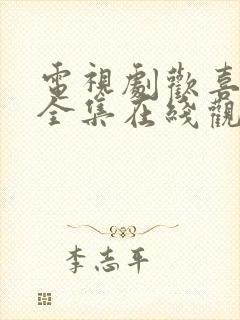 電視劇歡喜
全集在綫觀
李志平